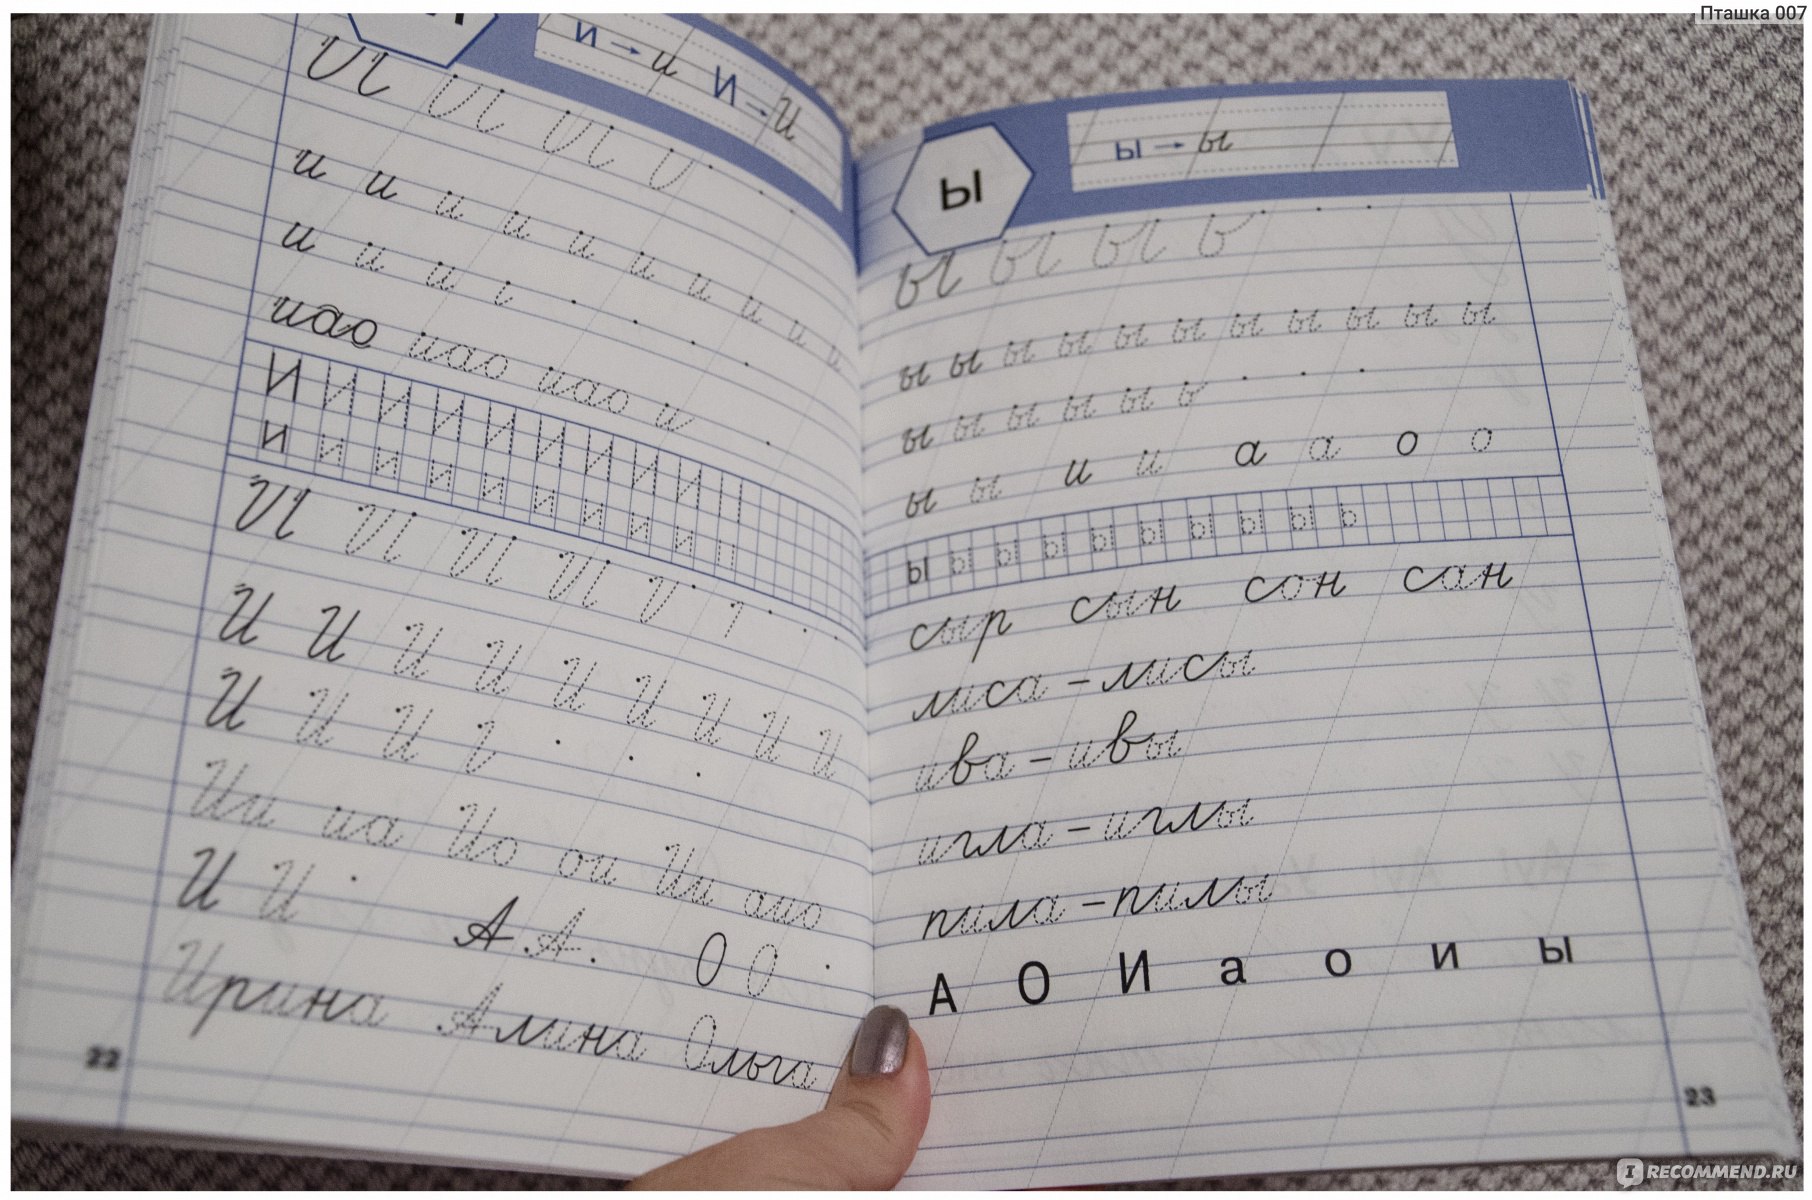 Пташка 007
и → и И → И
И И И И
и и и и и и и и и и
и и и
иао иао иао и
И И И И И И И И И
и и и и и и и и и
И И И И
И И И И И И И И И
И И И
Ии иа Ио ои Ии аио
И И А А О О
Ирина Алина Ольга
22
ы
ы → ы
ы ы ы ь
ы ы ы ы ы ы ы ы ы ы ы
ы ы ы ы ы ь
ы ы и и а а о о
ы ы ы ы ы ы ы ы ы ь
сыр сын сон сан
лиса – лисы
ива – ивы
игла – иглы
пила – пилы
А О И а о и ы
23
I RECOMMEND.RU